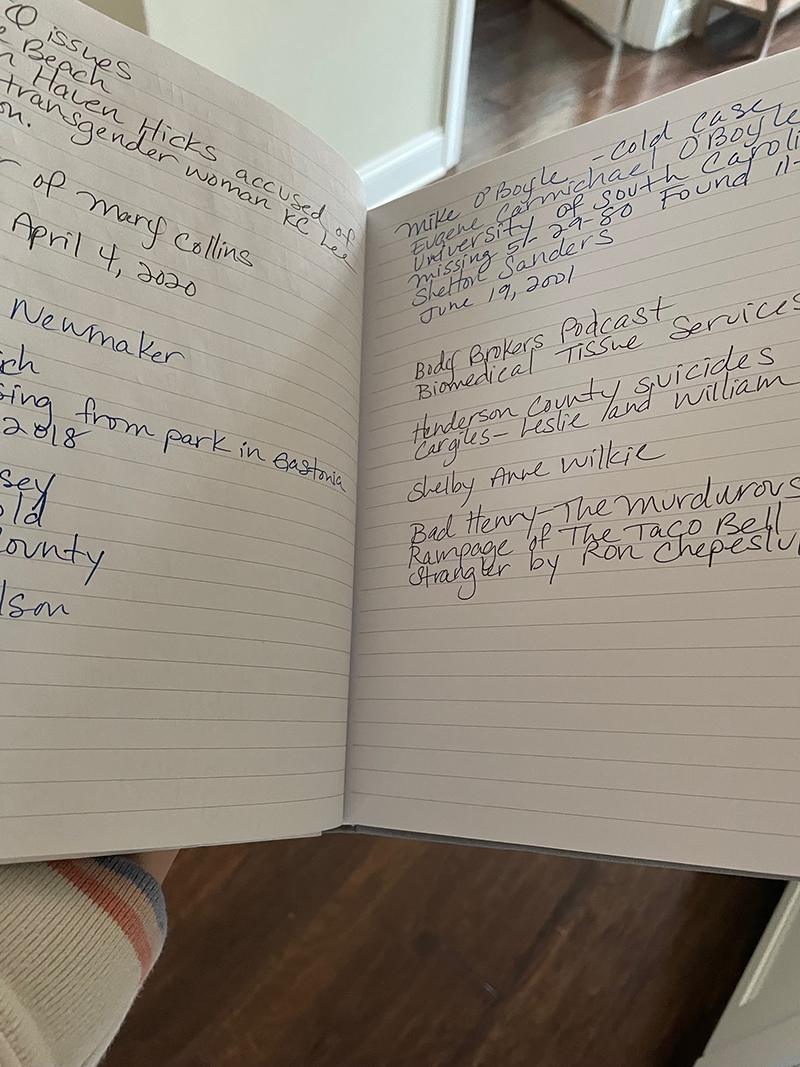 Q issues
Beach
Haven Hicks accused of
transgender woman KC Lee
on.
of Mary Collins
April 4, 2020
Newmaker
ich
sing from park in Gastonia
2018
sey
old
County
lson
Mike O'Boyle - Cold Case
Eugene Carmichael O'Boyle
University of South Caroli
missing 5-29-80 Found 11-
Shelton Sanders
June 19, 2001
Body Brokers Podcast
Biomedical Tissue Services
Henderson County suicides
Cargiles- Leslie and William
Shelby Anne Wilkie
Bad Henry-The Murdurous
Rampage of The Taco Bell
Strangler by Ron Chepesiu